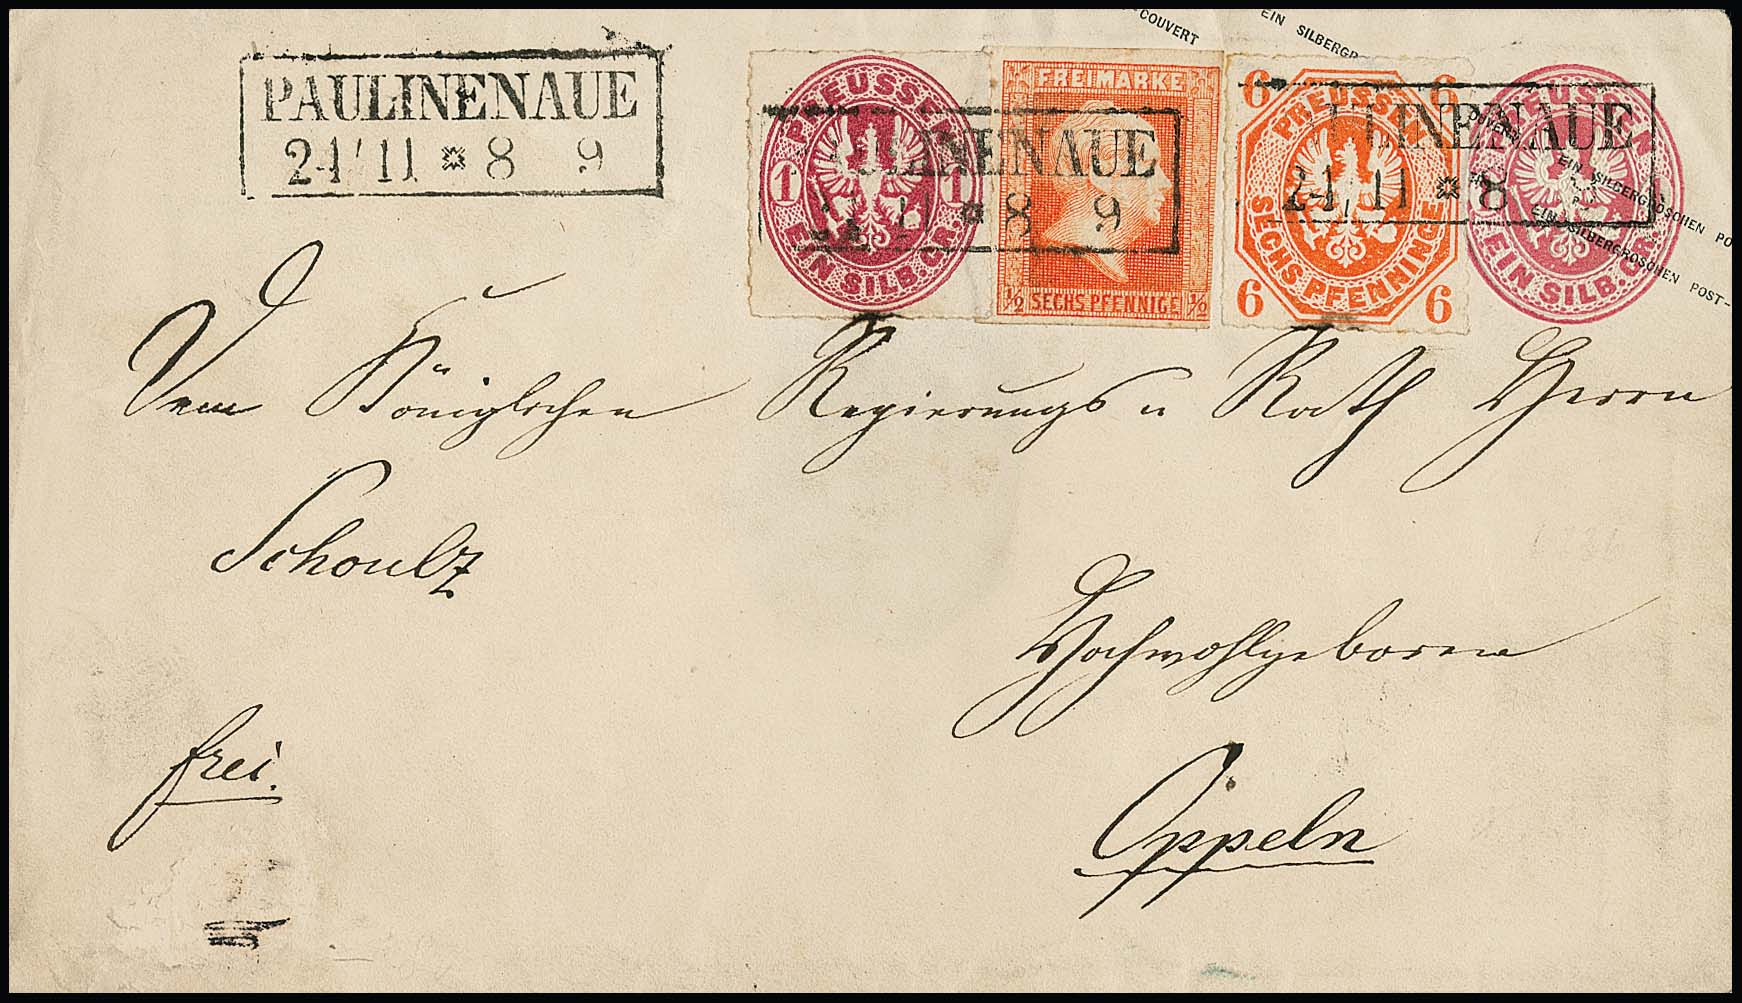 POST-COUVERT EIN SILBERGR
PAULINENAUE
24/11 * 8 9
PREUSSEN
1 1
EIN SILB. GR.
FREIMARKE
½ SECHS PFENNIGE ½
6 6
PREUSSEN
SECHS PFENNINGE
6 6
PREUSSEN
EIN SILB. GR.
PAULINENAUE
11 * 8 9
PAULINENAUE
24/11 * 8
EIN SILBERGROSCHEN PO
EIN SILBERGROSCHEN POST-
Dem Königlichen Regierungs u Rath Herrn
Schoulz
Hochwohlgeboren
frei.
Oppeln